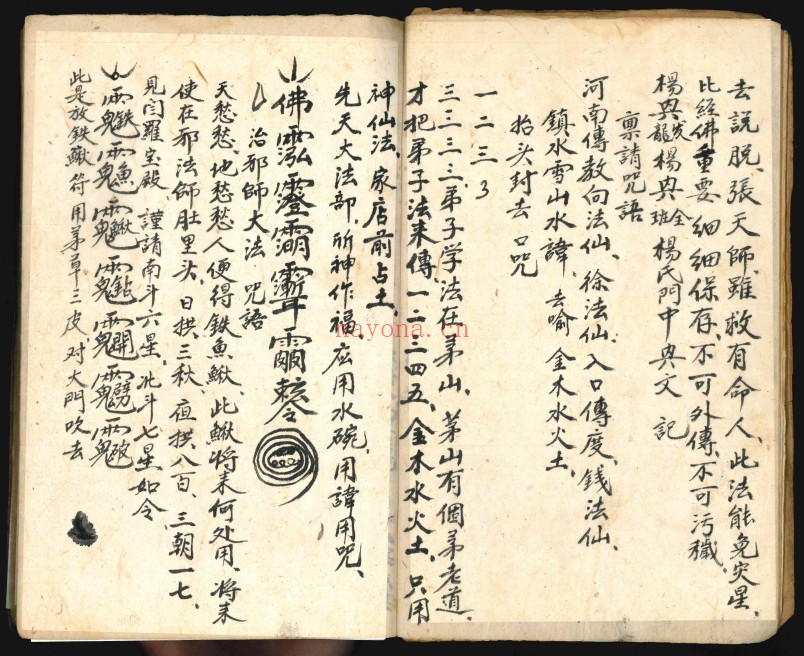 去說脱、張天師、雖救有命人、此法能免灾星、
比經佛重要、細細保存、不可外傳、不可污穢
楊興龍 楊興班 楊氏門中興文 記
禀請咒語
河南傳教向法仙、徐法仙、入口傳度、钱法仙、
鎮水雪山水諱、去喻、金木水火土、
抬头封去 口咒
一二三
三三三三弟子学法在茅山、茅山有個茅老道、
才把弟子法来傳、一二三四五、金木水火土、只用
神仙法、家店前占土、
先天大法部、所神作福、应用水碗、用諱用咒、
佛
治邪師大法 咒語
天愁愁、地愁愁、人便得鉄魚鰍、此鰍将来何处用、将来
使在邪法師肚里头、日拱三秋、夜拱八百、三朝一七、
見閆羅宝殿 謹請南斗六星、北斗七星如令
此是放鉄鰍符用茅草三皮、对大門吹去
nayona.cn